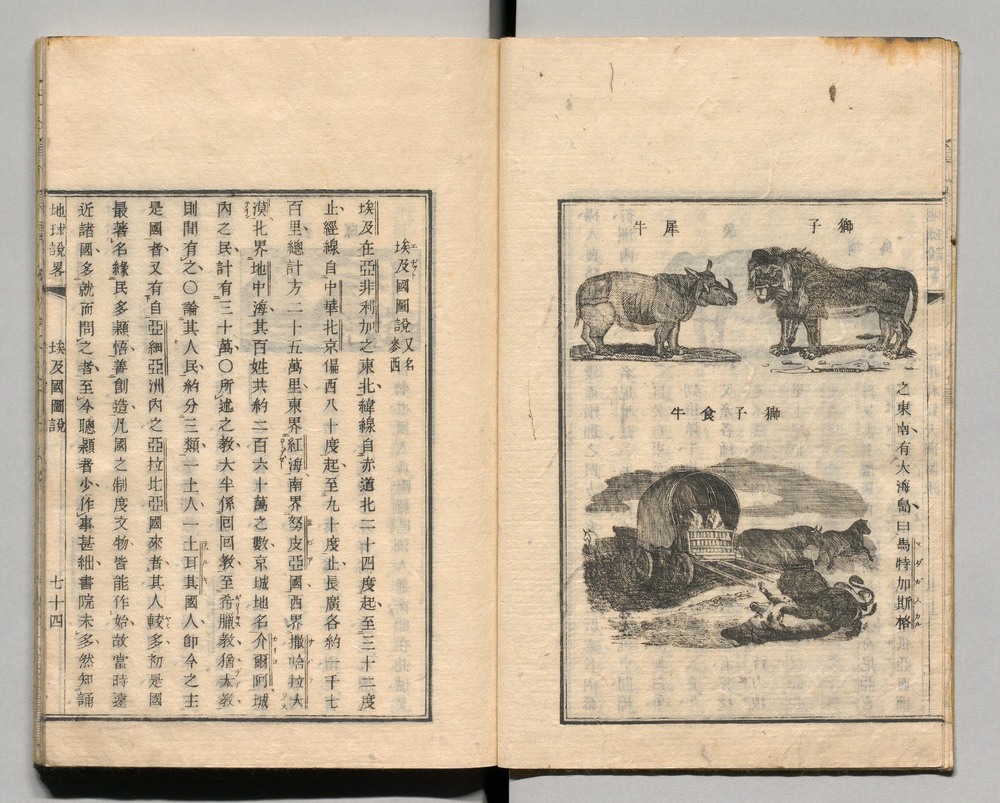 之東南有大海島曰馬特加斯格
獅子
犀牛
獅子食牛
埃及國圖說又名麥西
埃及在亞非利加之東北緯線自赤道北二十四度起至三十二度
止經線自中華北京偏西八十度起至九十度止長廣各約一千七
百里總計方二十五萬里東界紅海南界努皮亞國西界撒哈拉大
漠北界地中海其百姓共約二百六十萬之數京城地名介爾阿城
內之民計有三十萬〇所述之教大半係回回教至希臘教猶太教
則間有之〇論其人民約分三類一土人一土耳其國人卽今之主
是國者又有自亞細亞洲內之亞拉比亞國來者其人較多初是國
最著名緣民多穎悟善創造凡國之制度文物皆能作始故當時遠
近諸國多就而問之者至今聰穎者少作事甚細書院未多然知誦
地球說畧 埃及國圖說 七十四